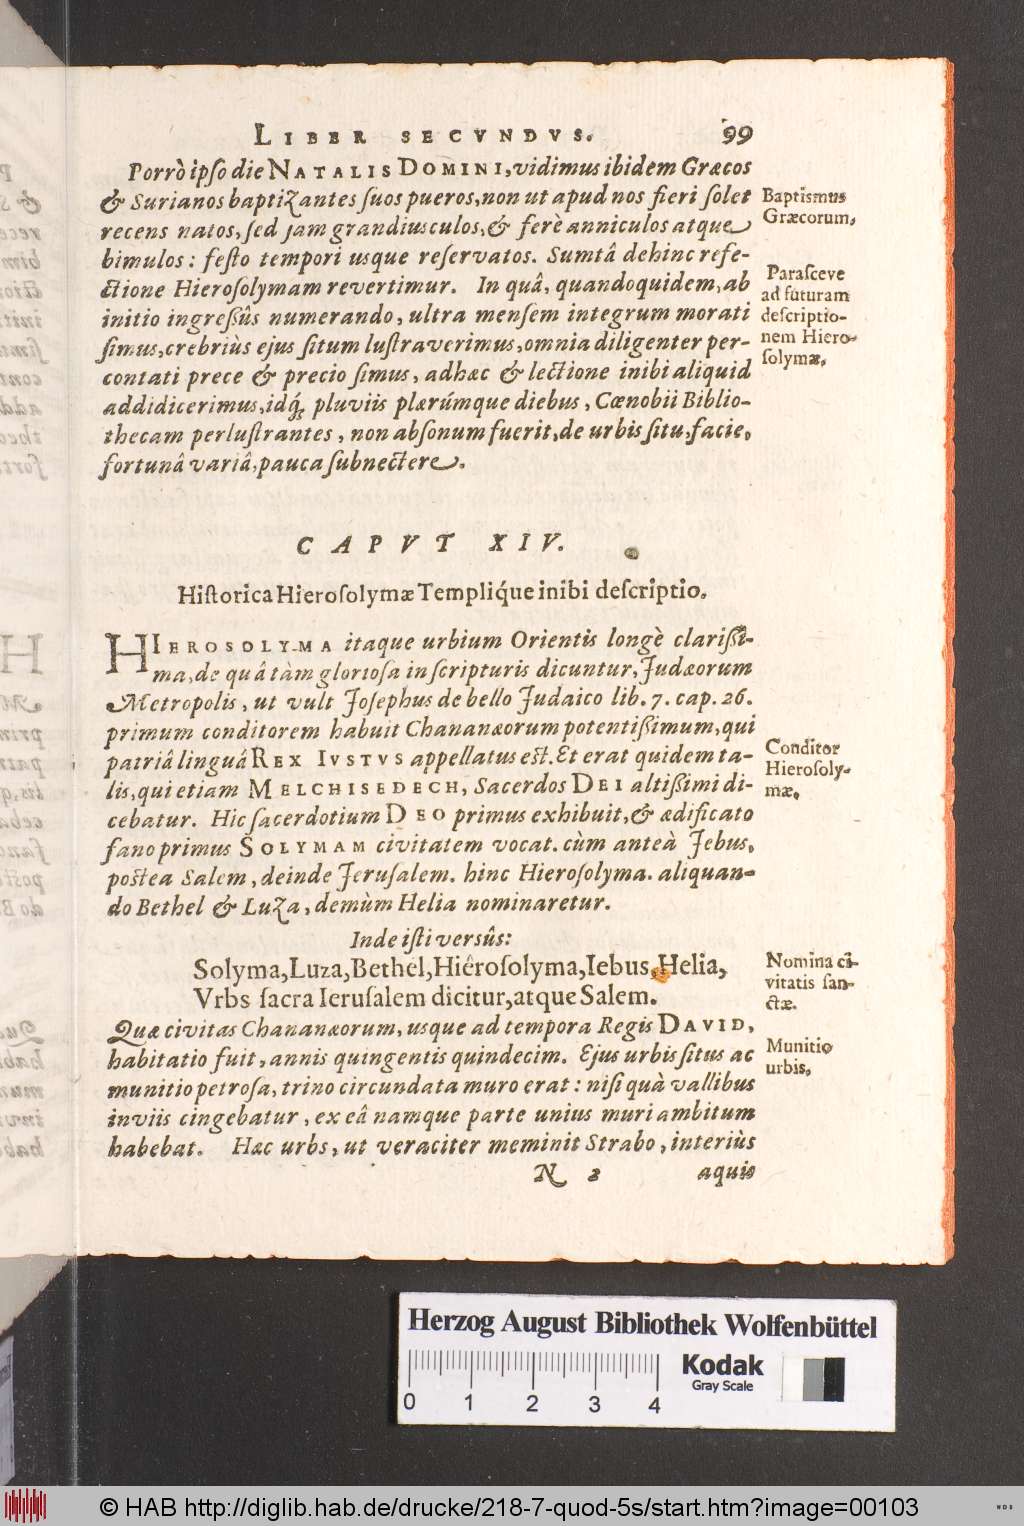 LIBER SECVNDVS. 99
Porrò ipso die NATALIS DOMINI, vidimus ibidem Græcos
& Surianos baptizantes suos pueros, non ut apud nos fieri solet
recens natos, sed jam grandiusculos, & ferè anniculos atque
bimulos: festo tempori usque reservatos. Sumtâ dehinc refe-
ctione Hierosolymam revertimur. In quâ, quandoquidem, ab
initio ingreßûs numerando, ultra mensem integrum morati
simus, crebriùs ejus situm lustraverimus, omnia diligenter per-
contati prece & precio simus, adhæc & lectione inibi aliquid
addidicerimus, idq́; pluviis plærúmque diebus, Cœnobii Biblio-
thecam perlustrantes, non absonum fuerit, de urbis situ, facie,
fortunâ variâ, pauca subnectere.
Baptismus
Græcorum,
Parasceve
ad futuram
descriptio-
nem Hiero-
solymæ,
CAPVT XIV.
Historica Hierosolymæ Templiq́ue inibi descriptio.
HIEROSOLYMA itaque urbium Orientis longè clarißi-
ma, de quâ tàm gloriosa in scripturis dicuntur, Judæorum
Metropolis, ut vult Josephus de bello Judaico lib. 7. cap. 26.
primum conditorem habuit Chananæorum potentißimum, qui
patriâ linguâ REX IVSTVS appellatus est. Et erat quidem ta-
lis, qui etiam MELCHISEDECH, Sacerdos DEI altißimi di-
cebatur. Hic sacerdotium DEO primus exhibuit, & ædificato
fano primus SOLYMAM civitatem vocat. cùm anteà Jebus,
postea Salem, deinde Jerusalem. hinc Hierosolyma. aliquan-
do Bethel & Luza, demùm Helia nominaretur.
Conditor
Hierosoly-
mæ,
Inde isti versûs:
Solyma, Luza, Bethel, Hiêrosolyma, Iebus, Helia,
Vrbs sacra Ierusalem dicitur, atque Salem.
Quæ civitas Chananæorum, usque ad tempora Regis DAVID,
habitatio fuit, annis quingentis quindecim. Ejus urbis situs ac
munitio petrosa, trino circundata muro erat: nisi quà vallibus
inviis cingebatur, ex eâ namque parte unius muri ambitum
habebat. Hæc urbs, ut veraciter meminit Strabo, interiùs
Nomina ci-
vitatis san-
ctæ.
Munitio
urbis,
N 2 aquis
Herzog August Bibliothek Wolfenbüttel
Kodak
Gray Scale
0 1 2 3 4
© HAB http://diglib.hab.de/drucke/218-7-quod-5s/start.htm?image=00103